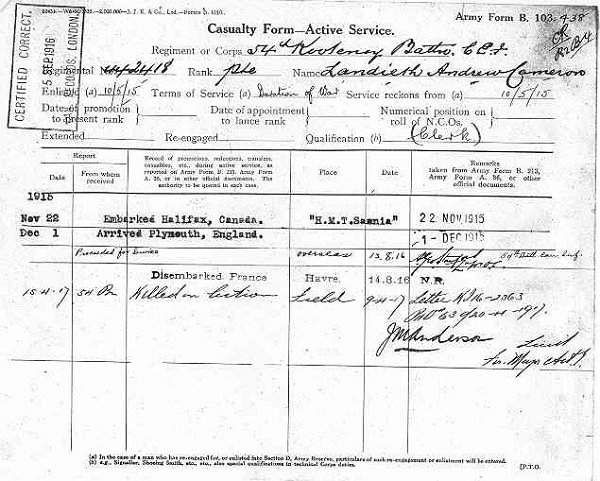 Army Form B. 103.
Casualty Form—Active Service.
CERTIFIED CORRECT.
5 SEP 1916
RECORDS, LONDON.
Regiment or Corps 54th Kootenay Battn. C.E.F.
Regimental No. 442418 Rank Pte Name Landieth Andrew Cameron
Enlisted (a) 10/5/15 Terms of Service (a) Duration of War Service reckons from (a) 10/5/15
Date of promotion to present rank
Date of appointment to lance rank
Numerical position on roll of N.C.Os.
Extended Re-engaged Qualification (b) (Clerk)
Report
Date
From whom received
Record of promotions, reductions, transfers, casualties, etc., during active service, as reported on Army Form B. 213, Army Form A. 36, or in other official documents. The authority to be quoted in each case.
Place
Date
Remarks
taken from Army Form B. 213, Army Form A. 36, or other official documents.
1915
Nov 22 Embarked Halifax, Canada. "H.M.T.Saxonia" 22 NOV 1915
Dec 1 Arrived Plymouth, England. 1 - DEC 1915
Proceeded for Service overseas 13.8.16
Disembarked France Havre. 14.8.16 N.R.
15-4-17 54 Bn Killed in Action Field 9-4-17 Letter
JM Anderson
Lieut
(a) In the case of a man who has re-engaged for, or enlisted into Section D, Army Reserve, particulars of such re-engagement or enlistment will be entered.
(b) e.g., Signaller, Shoeing Smith, etc., etc., also special qualifications in technical Corps duties.
[P.T.O.